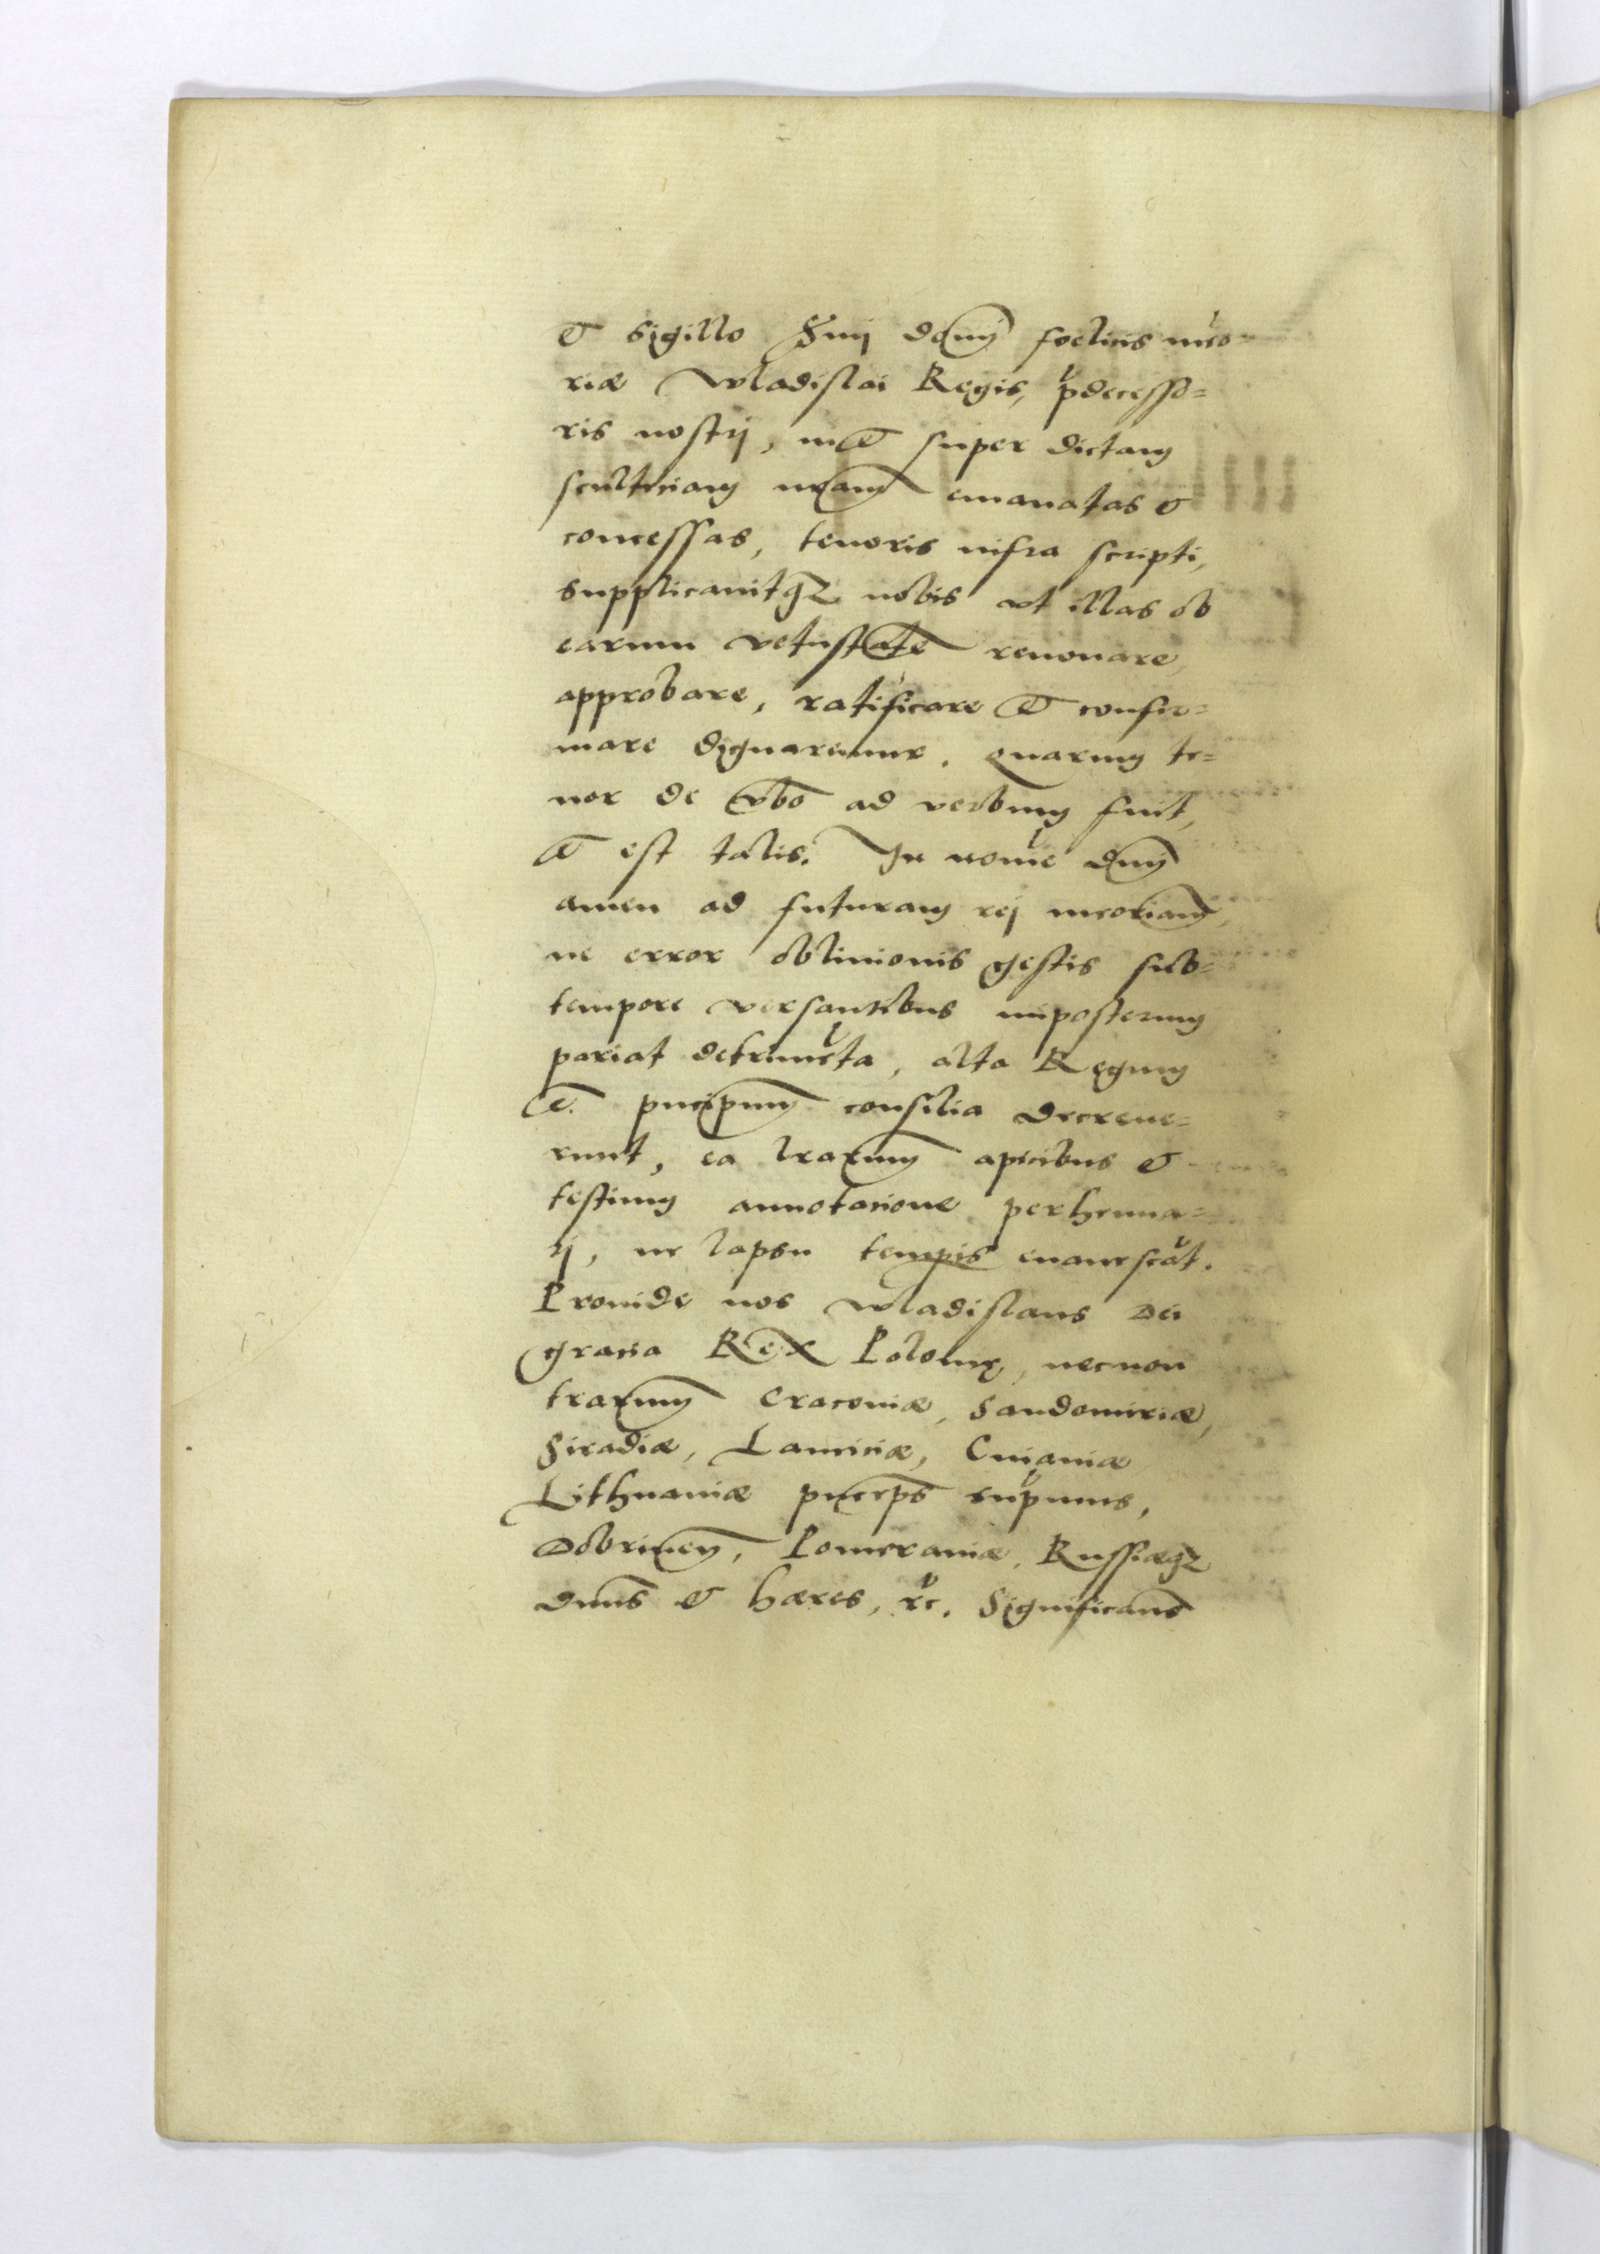 et sigillo Smi domi foelicis meo-
riæ Wladislai Regis, pdecesso=
ris nostrj, in et super dictam
scultetiam nram emanatas et
concessas, tenoris infra scripti,
supplicavitq3 nobis ut illas ob
earum vetustate renouare,
approbare, ratificare et confir=
mare dignaremur. quarum te=
nor de vbo ad verbum fuit,
et est talis. In nomie dnj
amen ad futuram rej meoriam,
ne error obliuionis gestis sub=
tempore versantibus imposterum
pariat detrimeta, alta Regum
et pncipum consilia decreue=
runt, ea lrarum apicibus et
testium annotatione perhenna=
rj, ne lapsu tempis euanescat.
Prouide nos Wladislaus Dei
gratia Rex Polonię, necnon
trarum Cracouiæ, Sandomiriæ,
Siradiæ, Lanciciæ, Cuiauiæ
Lithuaniæ princeps supmus,
Dobrinen, Pomeraniæ, Russiæq3
Dnus et hæres, rc. Significamus